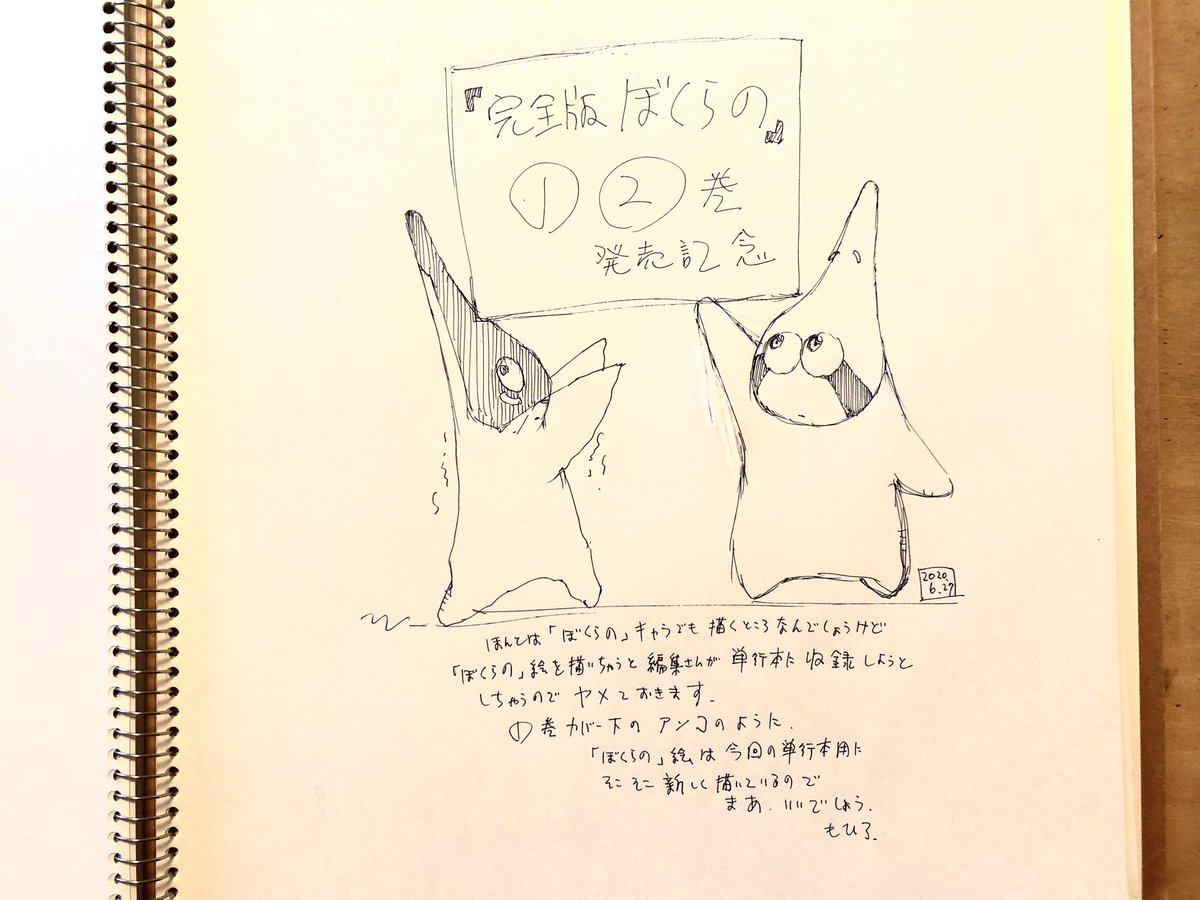 『完全版 ぼくらの』
① ② 巻
発売記念
2020.
6.27
ほんとは「ぼくらの」キャラでも描くところなんでしょうけど
「ぼくらの」絵を描いちゃうと編集さんが単行本に収録しようと
しちゃうので ヤメておきます.
①巻カバー下の アンコのように.
「ぼくらの」絵は今回の単行本用に
そこそこ新しく描いているので
まあ.いいでしょう.
もひろ.